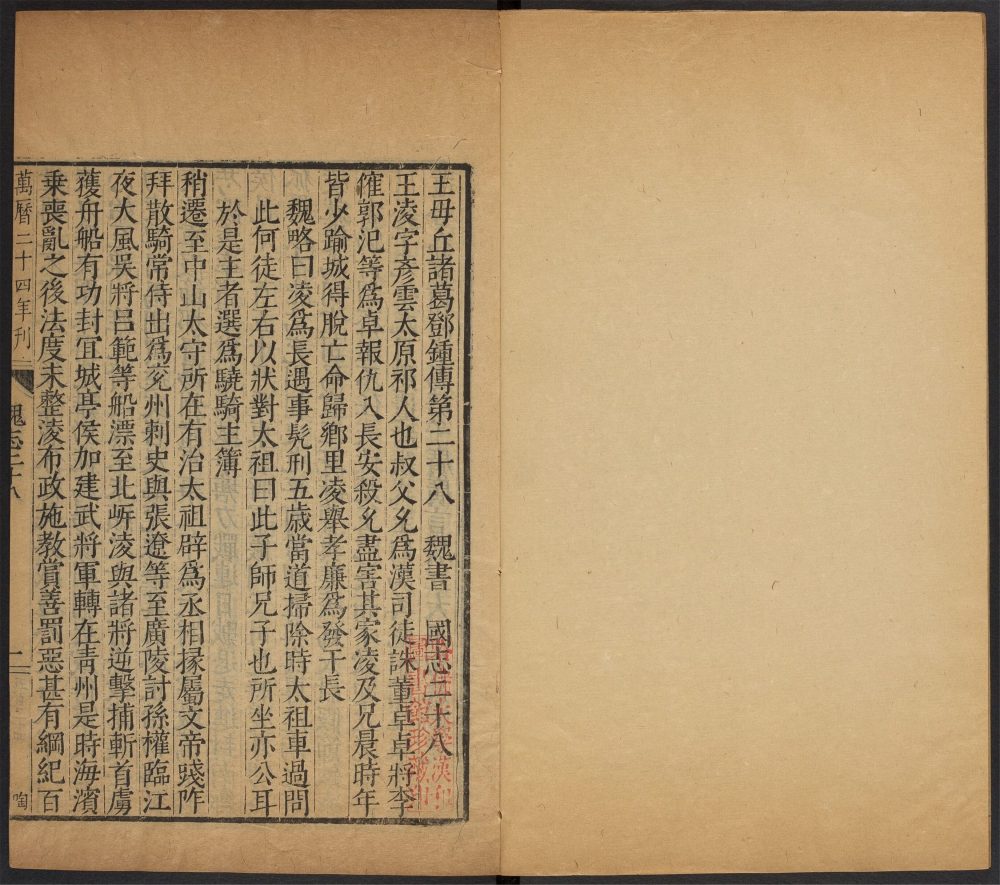 王毋丘諸葛鄧鍾傳第二十八 魏書 國志二十八
王淩字彥雲太原祁人也叔父允爲漢司徒誅董卓卓將李
傕郭汜等爲卓報仇入長安殺允盡害其家淩及兄晨時年
皆少踰城得脫亡命歸鄉里淩舉孝廉爲發干長
魏略曰淩爲長遇事髡刑五歲當道掃除時太祖車過問
此何徒左右以狀對太祖曰此子師兄子也所坐亦公耳
於是主者選爲驍騎主簿
稍遷至中山太守所在有治太祖辟爲丞相掾屬文帝踐阼
拜散騎常侍出爲兗州刺史與張遼等至廣陵討孫權臨江
夜大風吳將呂範等船漂至北岸淩與諸將逆擊捕斬首虜
獲舟船有功封宜城亭侯加建武將軍轉在青州是時海濱
乗喪亂之後法度未整淩布政施教賞善罰惡甚有綱紀百
萬曆二十四年刊
魏志二八
一
陶